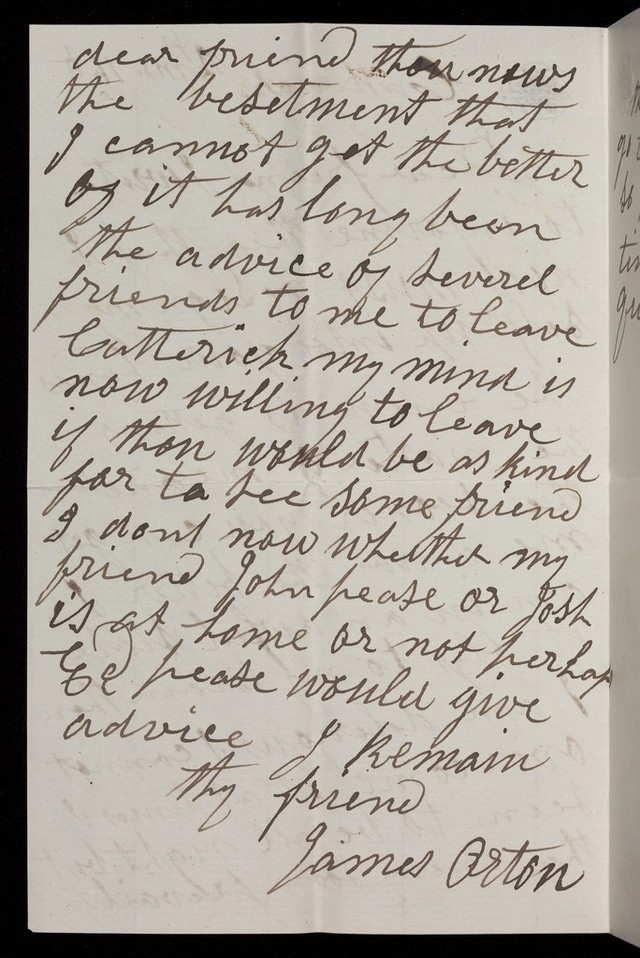 dear friend thou nows
the besetment that
I cannot get the better
of it has long been
the advice of severel
friends to me to leave
Catterick my mind is
now willing to leave
if thou would be as kind
for to see some friend
I dont now whether my
friend John pease or Josh
is at home or not perhap
Ed pease would give
advice I Remain
thy friend
James Orton